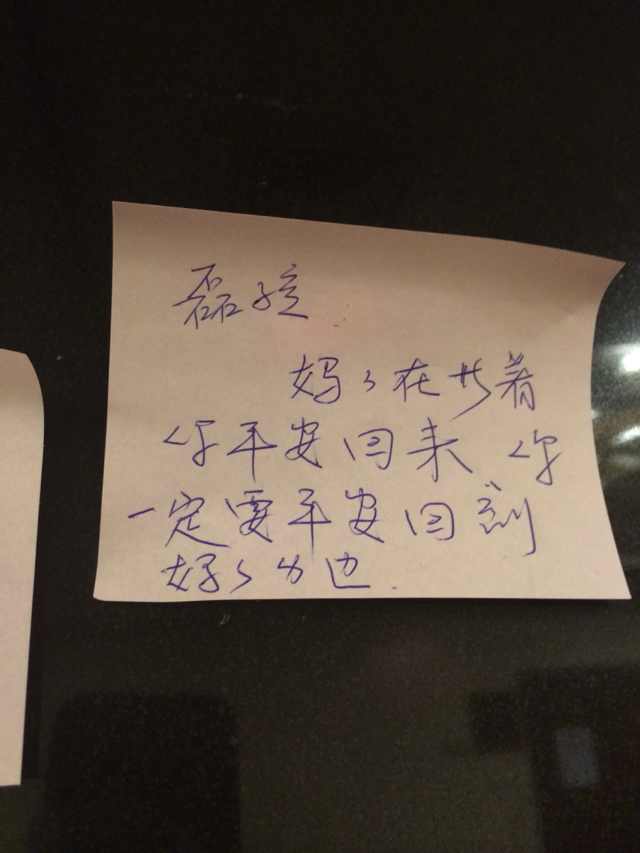 磊孩
妈妈在等着
你平安回来 你
一定要平安回到
妈妈身边.